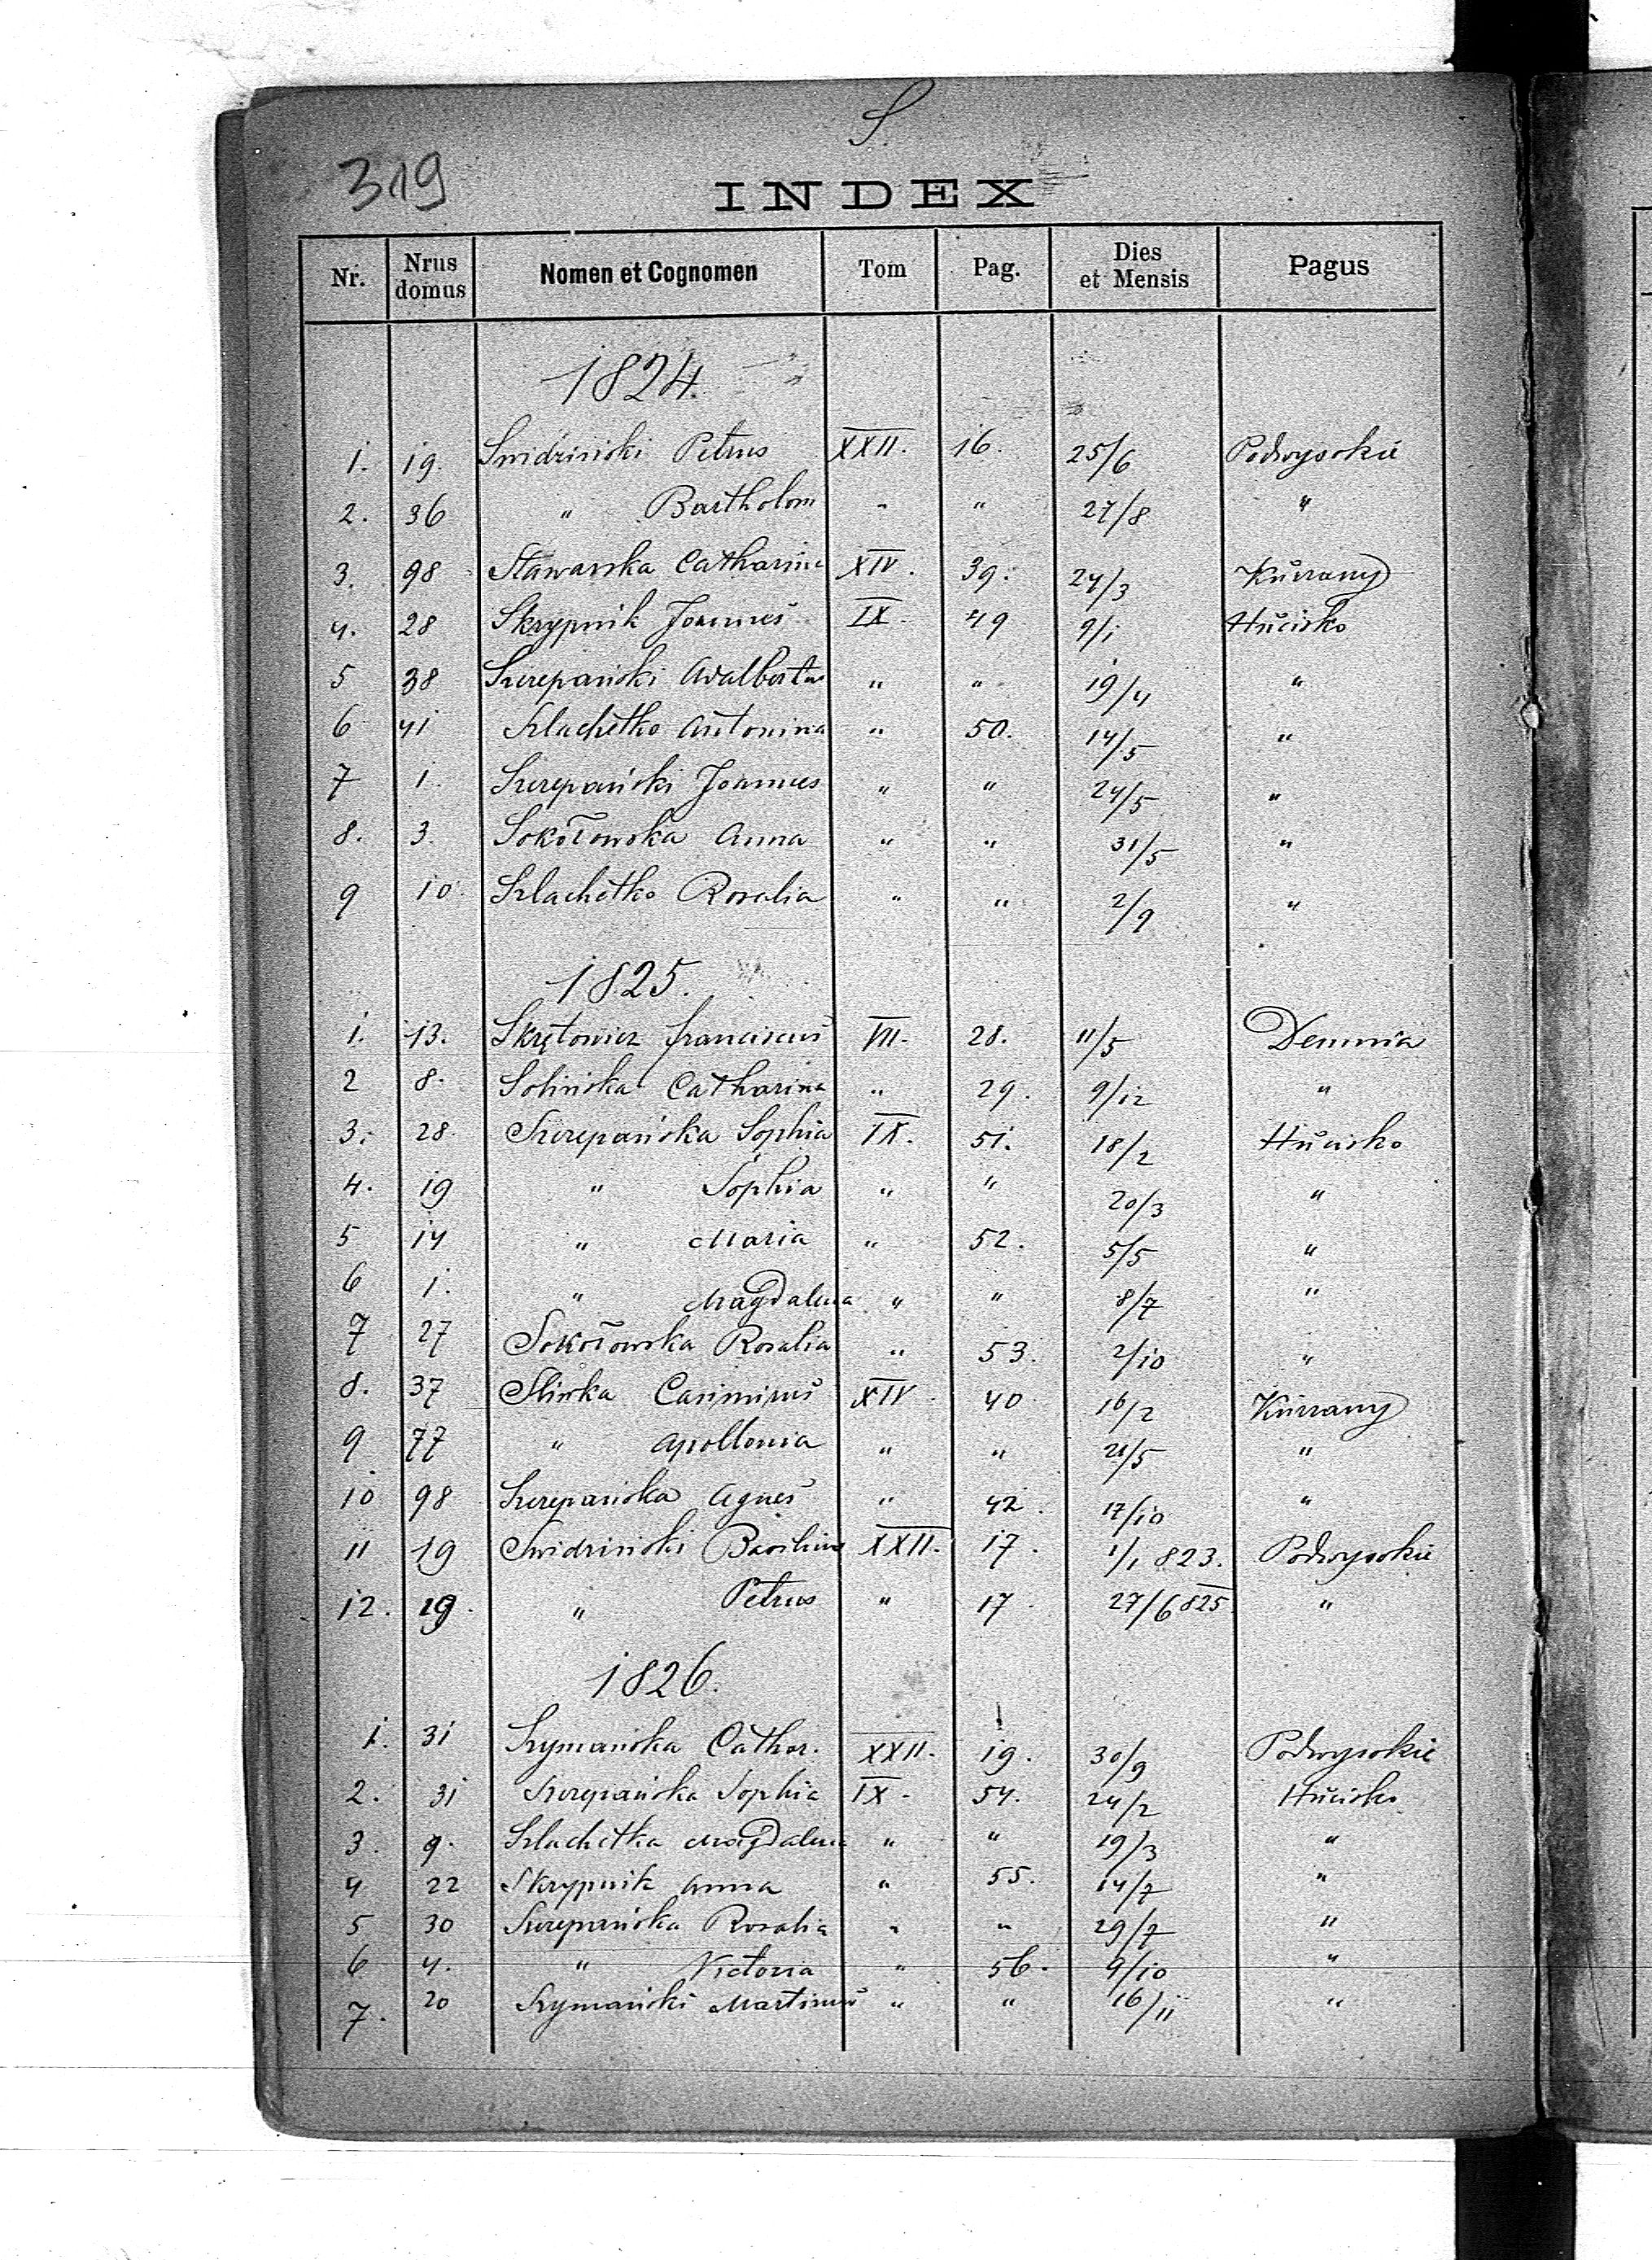 S.
319
INDEX
Nr. Nrus domus Nomen et Cognomen Tom Pag. Dies et Mensis Pagus
1824.
1. 19. Swidziński Petrus XXII. 16. 25/6 Podwysokie
2. 36 " Bartholom " " 27/8 "
3. 98 Stawarska Catharina XIV. 39. 24/3 Kurzany
4. 28 Skrypnik Joannes IX. 49 9/1 Hucisko
5 38 Szczepański Adalbertus " " 19/4 "
6 41 Szlachetko Antonina " 50. 14/5 "
7 1. Szczepański Joannes " " 24/5 "
8. 3. Sokołowska Anna " " 31/5 "
9 10 Szlachetko Rosalia " " 2/9 "
1825.
1. 13. Skrętowicz Franciscus VII. 28. 11/5 Demnia
2 8. Solińska Catharina " 29. 9/12 "
3. 28. Szczepańska Sophia IX. 51. 18/2 Hucisko
4. 19 " Sophia " " 20/3 "
5 14 " Maria " 52. 5/5 "
6 1. " Magdalena " " 8/7 "
7 27 Sokołowska Rosalia " 53. 2/10 "
8. 37 Sliwka Casimirus XIV 40 16/2 Kurzany
9 77 " Apollonia " " 21/5 "
10 98 Szczepańska Agnes " 42. 17/10 "
11 19 Swidziński Basilius XXII. 17. 1/1 823. Podwysokie
12. 19. " Petrus " 17. 27/6 825. "
1826.
1. 31 Szymańska Cathar. XXII. 19. 30/9 Podwysokie
2. 31 Szczepańska Sophia IX. 54. 24/2 Hucisko
3. 9. Szlachetka Magdalena " " 19/3 "
4 22 Skrypnik Anna " 55. 14/7 "
5 30 Szczepańska Rosalia " " 29/7 "
6 4. " Victoria " 56. 9/10 "
7. 20 Szymański Martinus " " 16/11 "